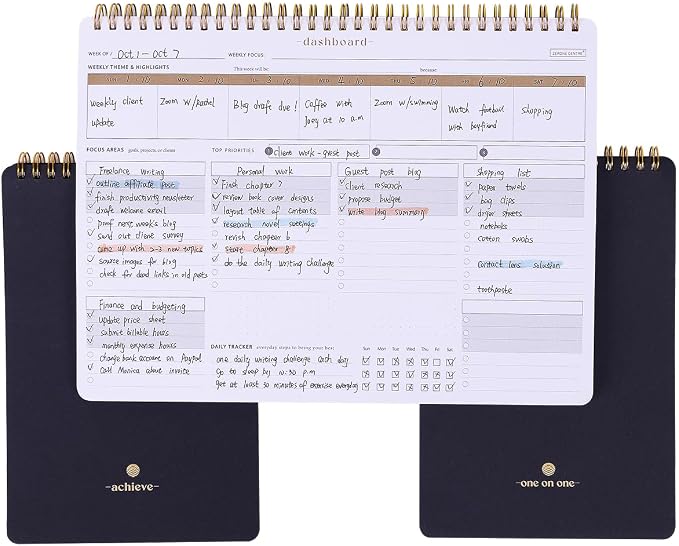 -dashboard-
WEEK OF / Oct 1 - Oct 7
WEEKLY FOCUS
WEEKLY THEME & HIGHLIGHTS
This week will be:
because:
SUN 1 / 10 MON 2 / 10 TUE 3 / 10 WED 4 / 10 THU 5 / 10 FRI 6 / 10 SAT 7 / 10
weekly client
update
Zoom w/
Blog draft due!
Coffee with
Joey at 10 a.m
Zoom w/swimming
Watch football
with boyfriend
shopping
FOCUS AREAS / goals, projects, or clients
TOP PRIORITIES
1 Client work - guest post
2
3
Freelance Writing
outline affiliate post
finish productivity newsletter
draft welcome email
proof next week's blog
send out client survey
come up with 2-3 new topics
source images for blog
check for dead links in old posts
Personal Work
Finish chapter 7
review book cover designs
layout table of contents
research novel settings
revish chapter 6
start chapter 8
do the daily writing challenge
Guest post blog
client research
propose budget
write blog summary
shopping list
paper towels
bag clips
dryer sheets
notebooks
cotton swabs
contact lens solution
toothpaste
Finance and budgeting
update price sheet
submit billable hours
monthly expense hours
change bank account on Paypal
Call Monica about invoice
DAILY TRACKER everyday steps to being your best
Sun Mon Tue Wed Thu Fri Sat
one daily writing challenge each day
Go to sleep by 10:30 p.m
get at least 30 minutes of exercise everyday
-achieve-
-one on one-